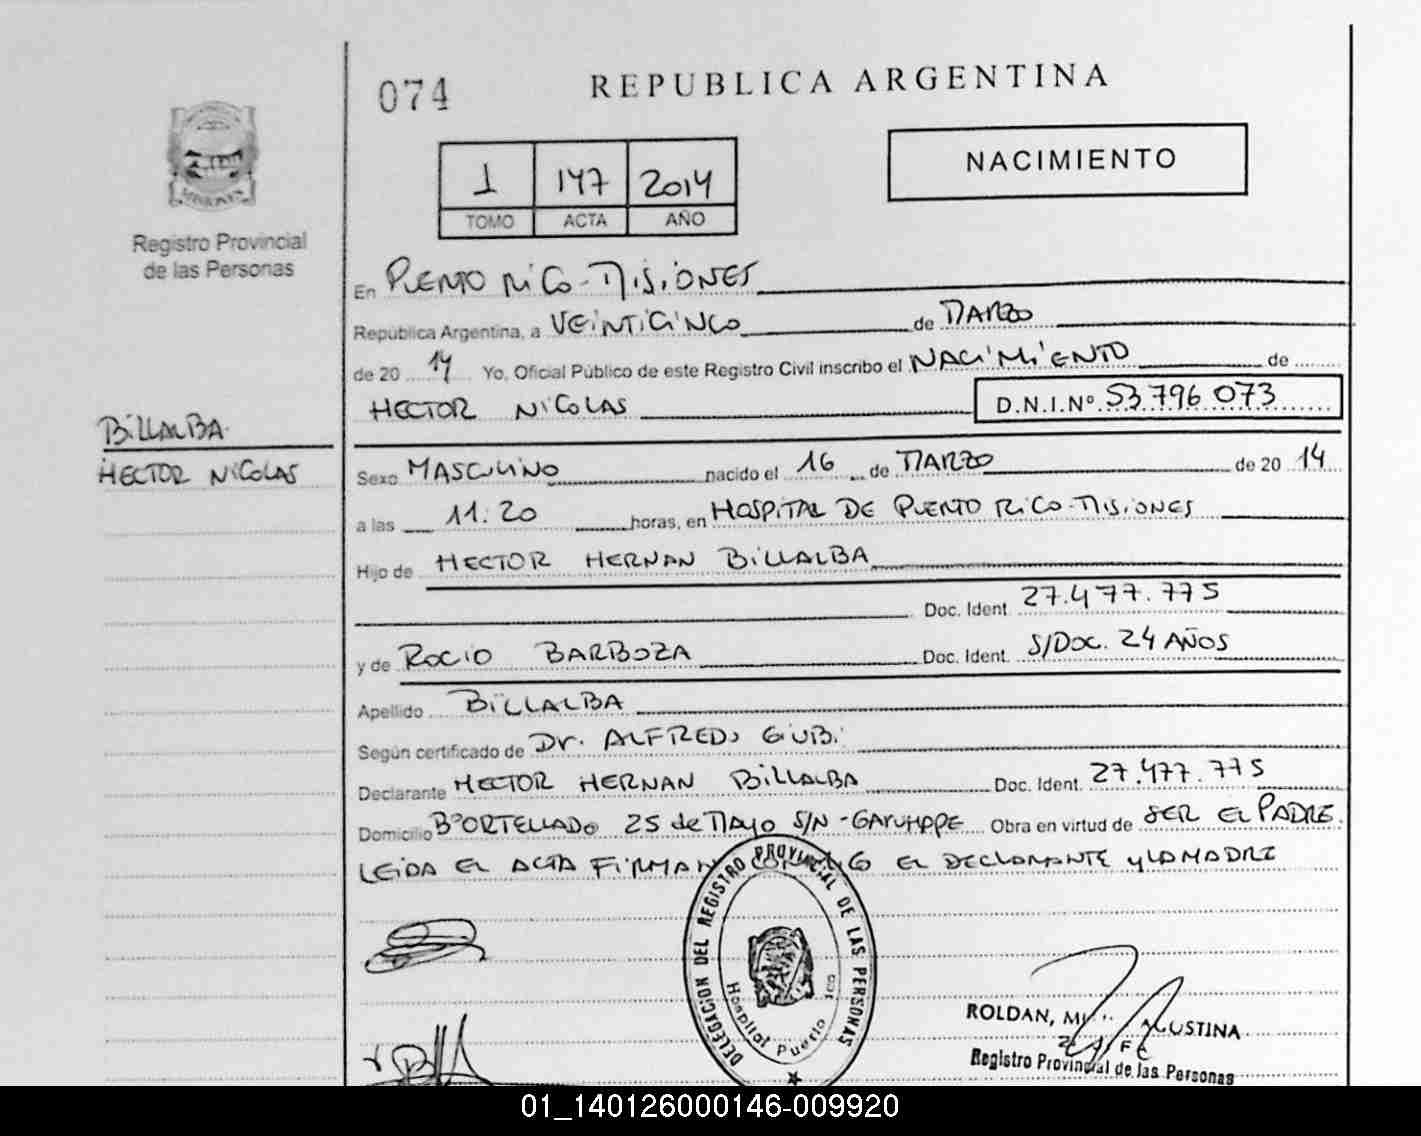 074
REPUBLICA ARGENTINA
NACIMIENTO
1 147 2014
TOMO ACTA AÑO
Registro Provincial
de las Personas
En PUERTO RICO - MISIONES
República Argentina, a VEINTICINCO de MARZO
de 20 14 Yo, Oficial Público de este Registro Civil inscribo el NACIMIENTO de
HECTOR NICOLAS D.N.I.Nº 53.796 073
BILLALBA
HECTOR NICOLAS
Sexo MASCULINO nacido el 16 de MARZO de 20 14
a las 11:20 horas, en HOSPITAL DE PUERTO RICO - MISIONES
Hijo de HECTOR HERNAN BILLALBA
Doc. Ident. 27.477.775
y de ROCIO BARBOZA Doc. Ident. S/DOC. 24 AÑOS
Apellido BILLALBA
Según certificado de Dr. ALFREDO
Declarante HECTOR HERNAN BILLALBA Doc. Ident. 27.477.775
Domicilio Bº ORTELLADO 25 de MAYO S/N - GARUHAPE Obra en virtud de SER EL PADRE.
LEIDA EL ACTA FIRMAN EL DECLARANTE y LA MADRE
DELEGACION DEL REGISTRO PROVINCIAL DE LAS PERSONAS
Hospital Puerto Rico
ROLDAN, AGUSTINA
Registro Provincial de las Personas
01_140126000146-009920